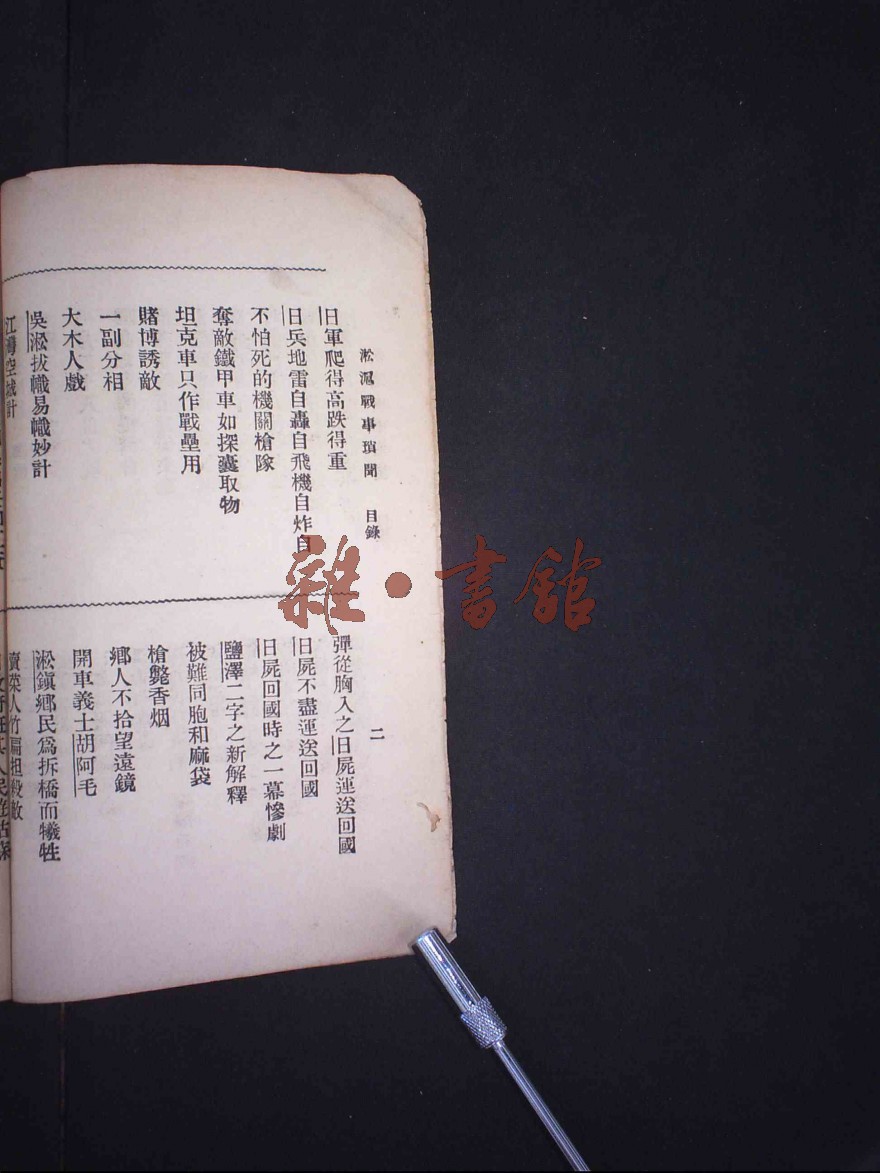 淞滬戰事瑣聞　目錄　二
日軍爬得高跌得重
日兵地雷自轟自飛機自炸自
不怕死的機關槍隊
奪敵鐵甲車如探囊取物
坦克車只作戰壘用
賭博誘敵
一副分相
大木人戲
吳淞拔幟易幟妙計
江灣空城計
彈從胸入之日屍運送回國
日屍不盡運送回國
日屍回國時之一幕慘劇
鹽澤二字之新解釋
被難同胞和麻袋
槍斃香烟
鄉人不拾望遠鏡
開車義士胡阿毛
淞鎭鄉民爲拆橋而犧牲
賣菜人竹扁担殺敵
雜·書館